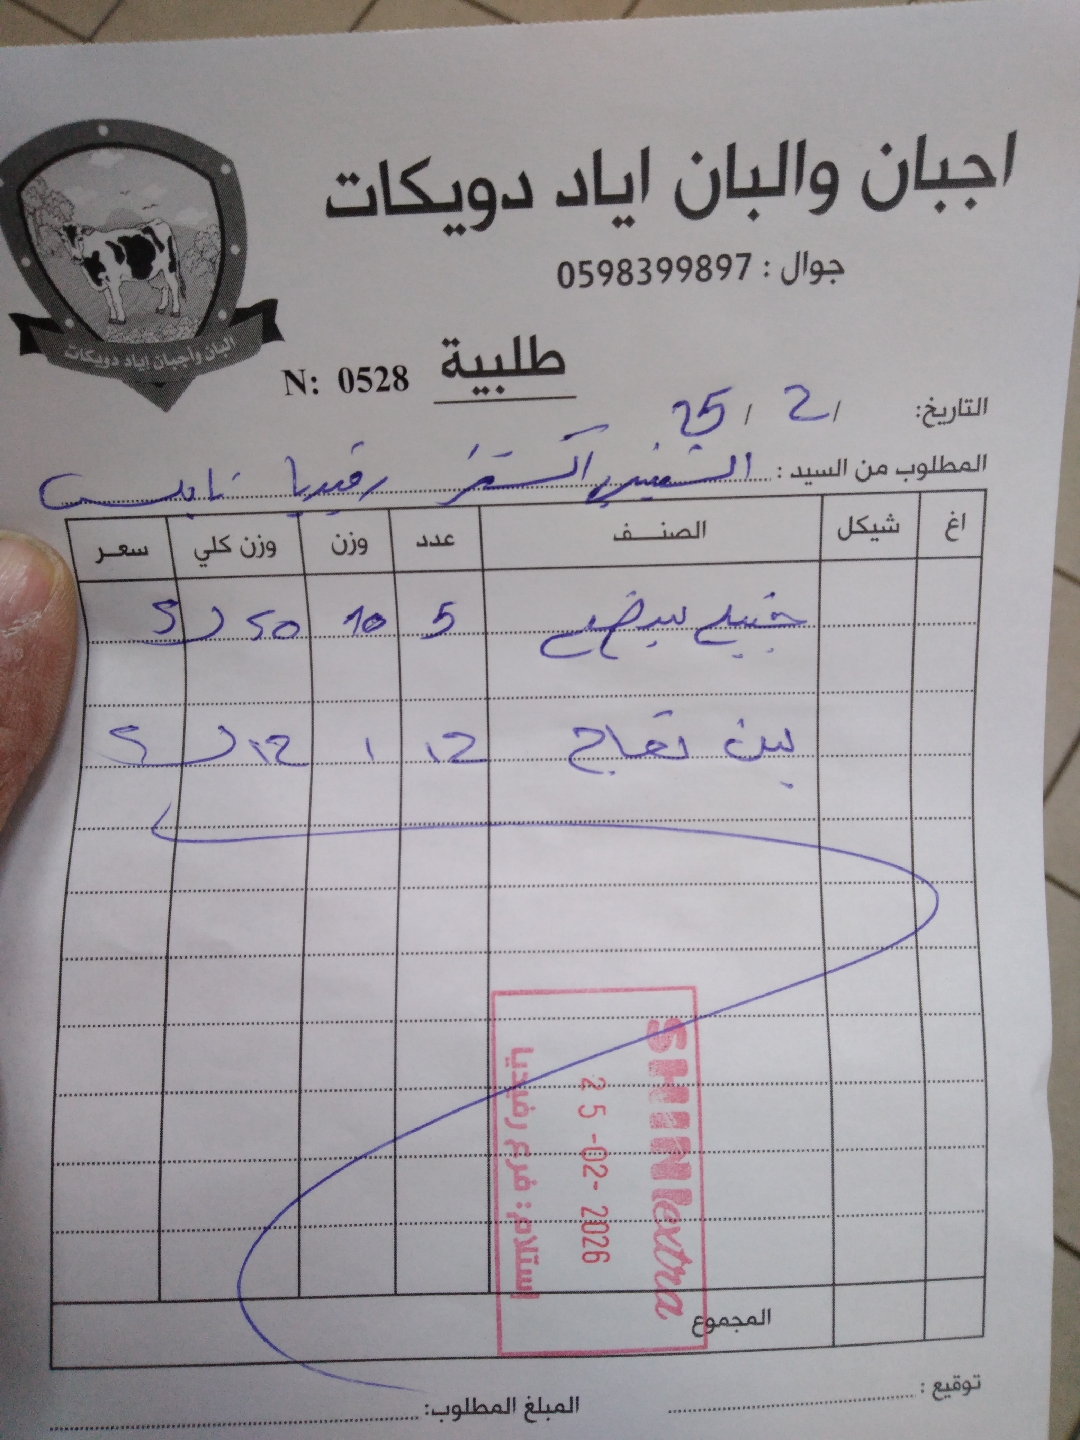 اجبان والبان اياد دويكات
جوال : 0598399897
البان واجبان إياد دويكات
طلبية
N: 0528
التاريخ: / 2 / 25
المطلوب من السيد : الشيني اكسترا رفيديا نابلس
اغ شيكل الصنف عدد وزن وزن كلي سعر
جبنة بيضه 5 10 50
لبن نعاج 12 1 12
SHINI extra
25-02-2026
إستلام: فرع رفيديا
المجموع
توقيع :
المبلغ المطلوب: